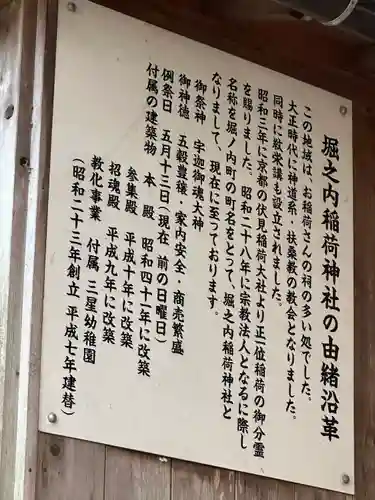 堀之内稲荷神社の由緒沿革
この地域は、お稲荷さんの祠の多い処でした。
大正時代に神道系・扶桑教の教会となりました。
同時に敉栄講も設立されました。
昭和三年に京都の伏見稲荷大社より正一位稲荷の御分霊
を賜りました。昭和二十八年に宗教法人となるに際し
名称を堀ノ内町の町名をとって、堀之内稲荷神社と
なりまして、現在に至っております。
御祭神 宇迦御魂大神
御神徳 五穀豊穣・家内安全・商売繁盛
例祭日 五月十三日(現在 前の日曜日)
付属の建築物 本 殿 昭和四十一年に改築
参集殿 平成十年に改築
招魂殿 平成九年に改築
教化事業 付属 三星幼稚園
(昭和二十三年創立 平成七年建替)